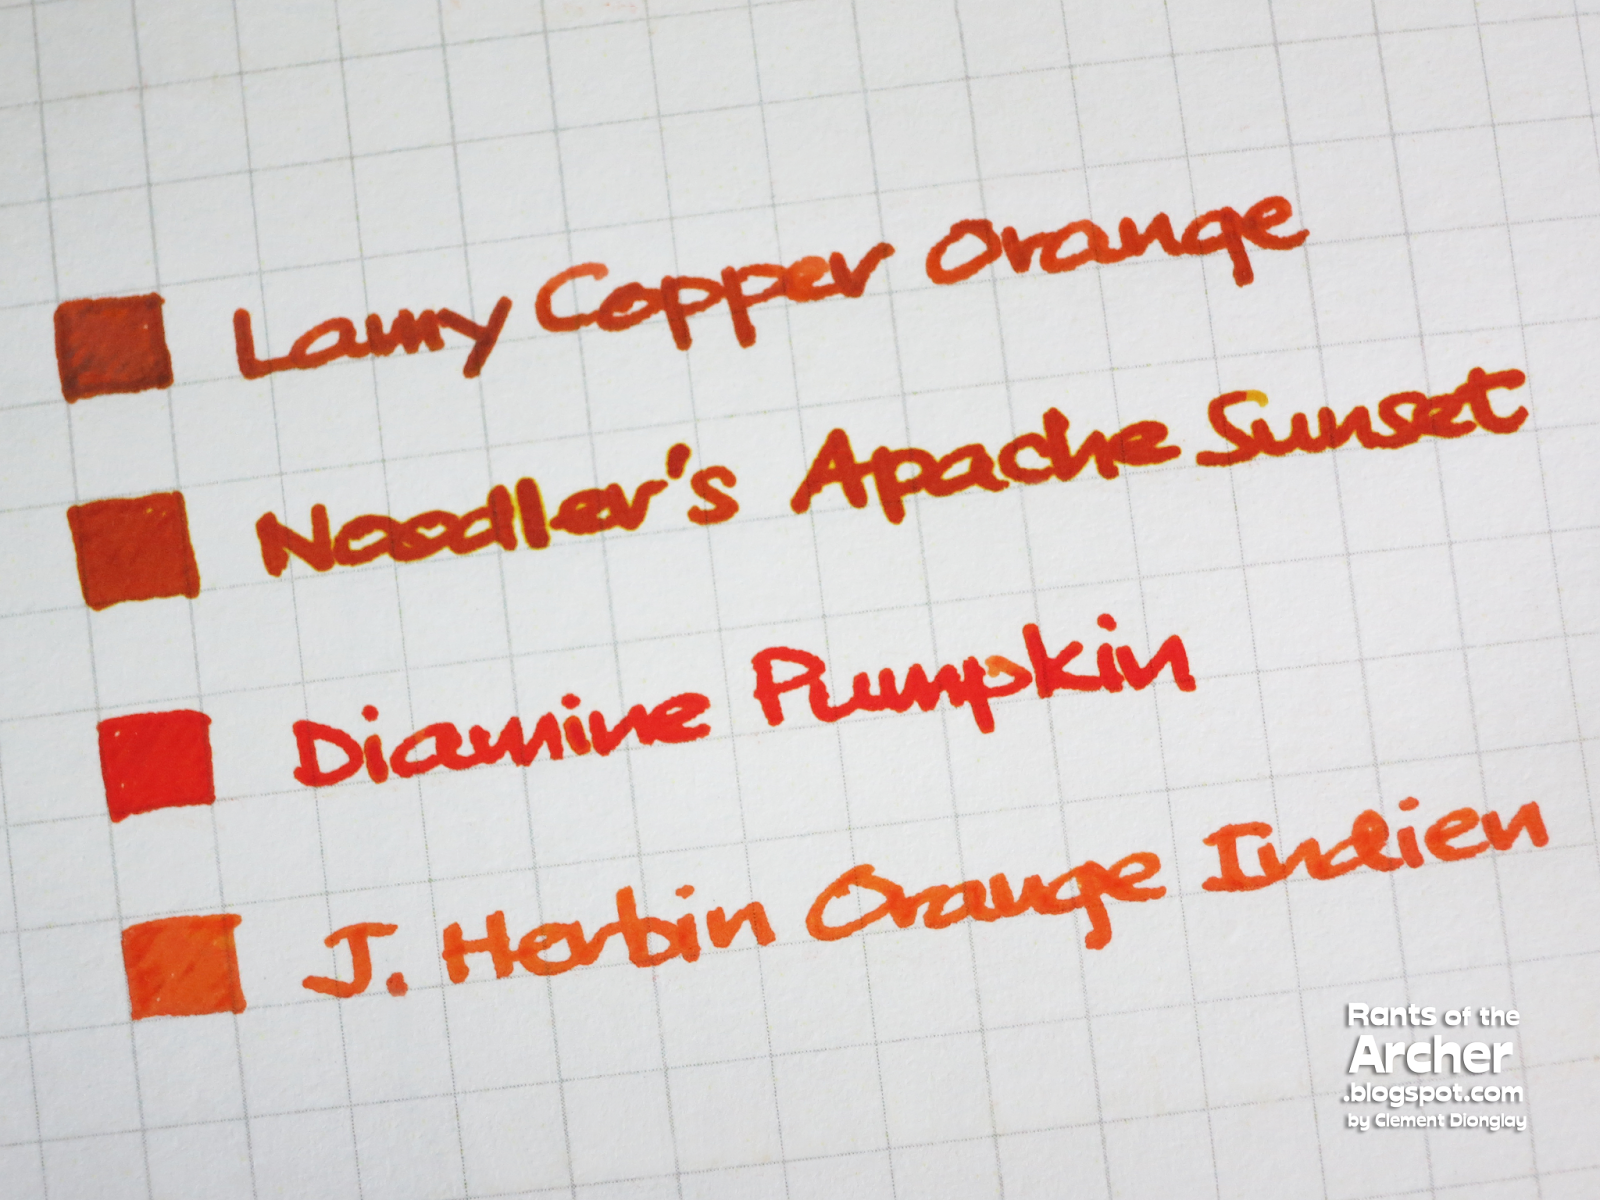 Lamy Copper Orange
Noodler's Apache Sunset
Diamine Pumpkin
J. Herbin Orange Indien
Rants of the
Archer
.blogspot.com
by Clement Dionglay